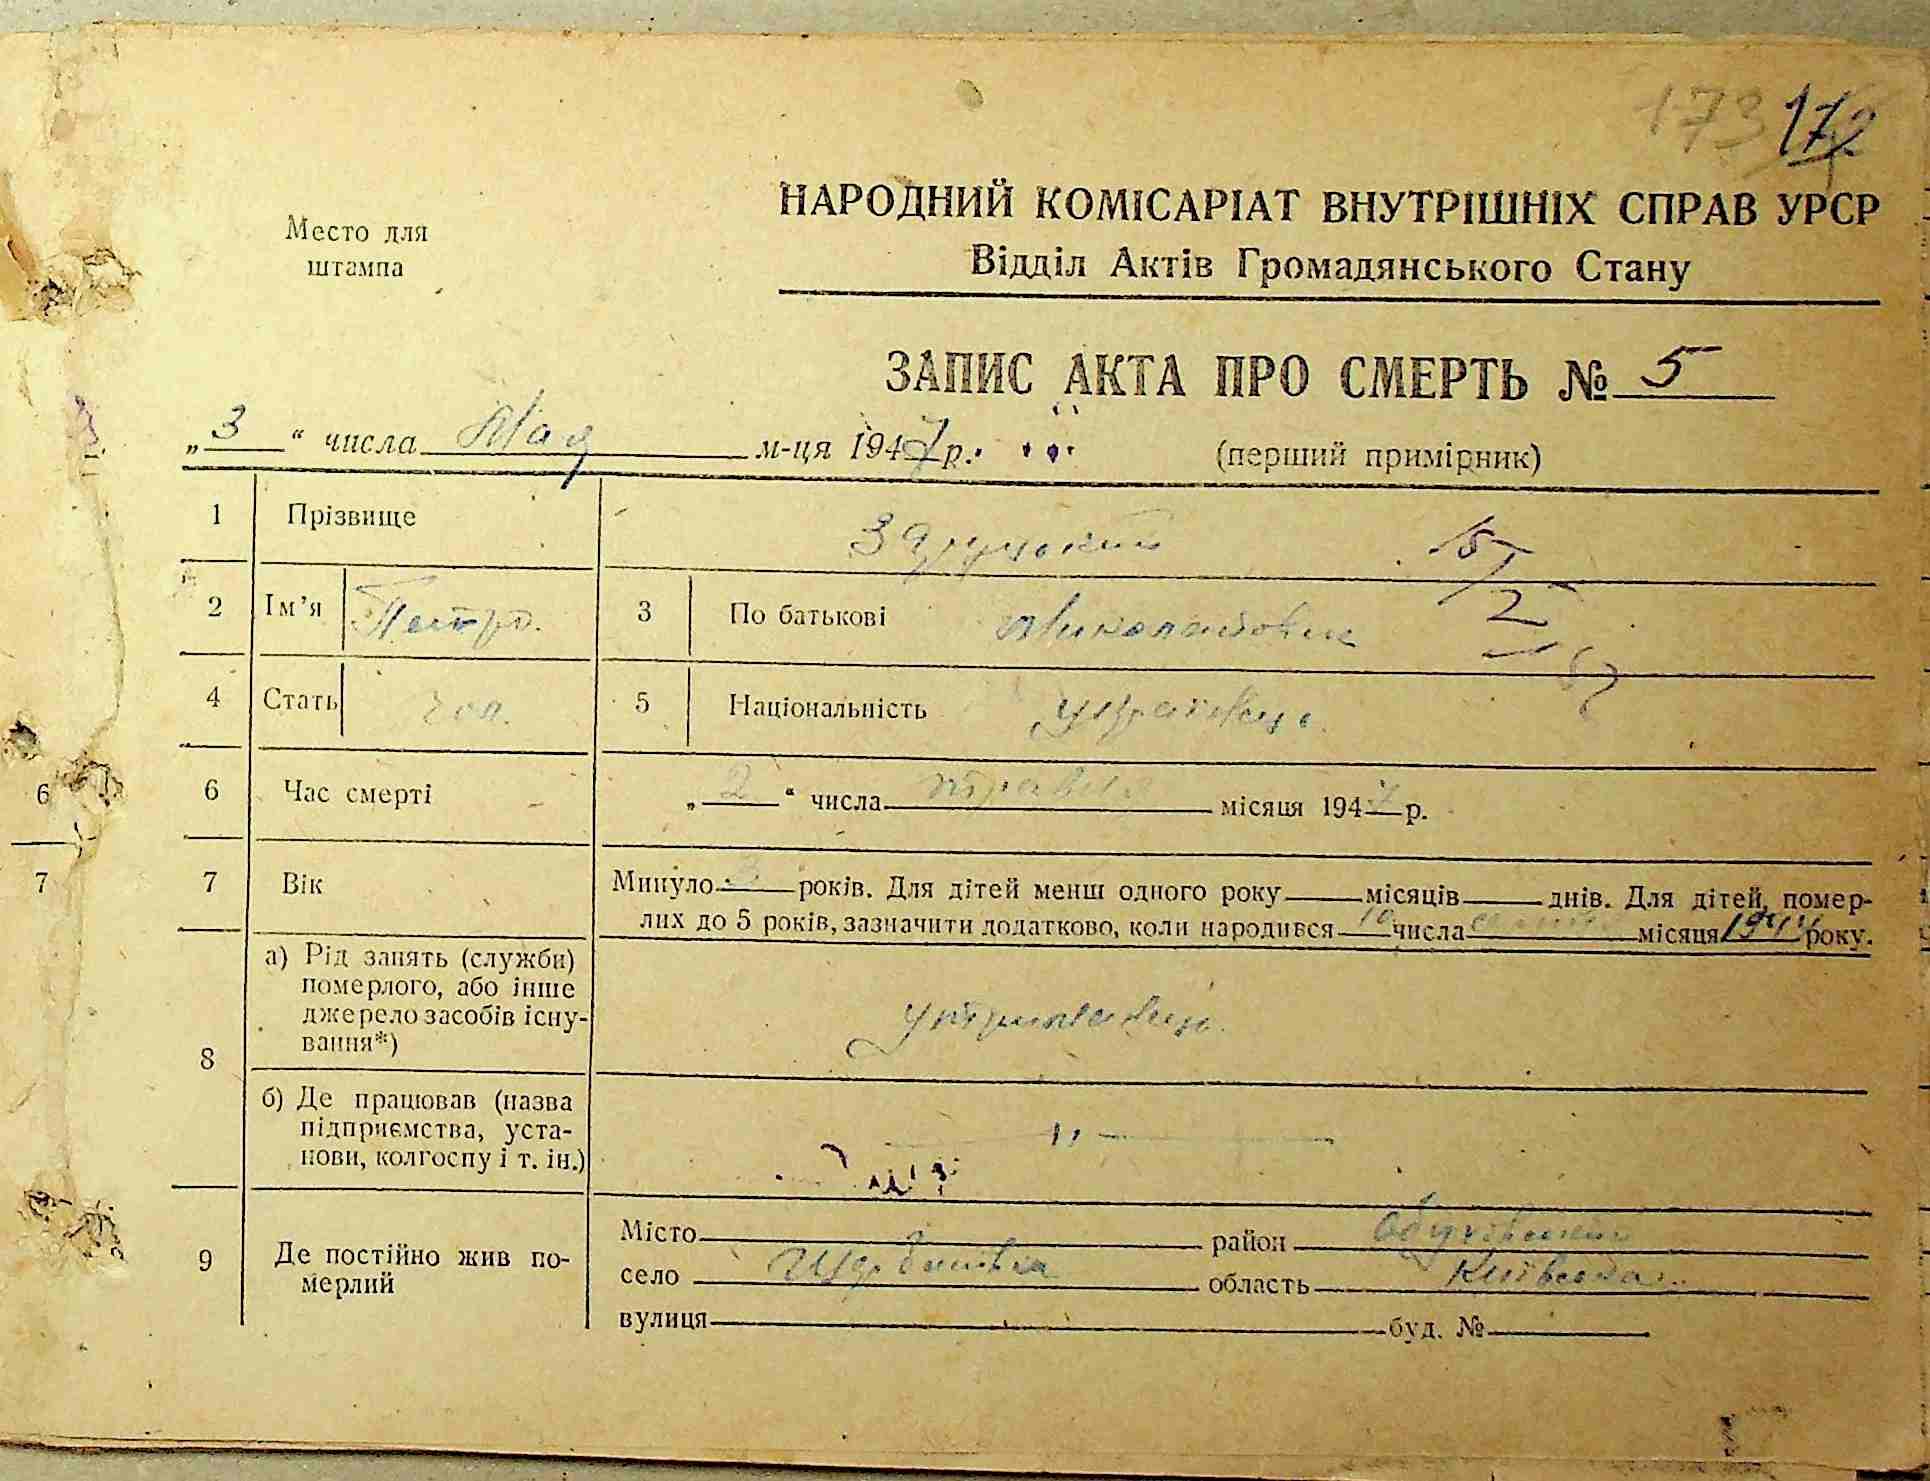 173 172
Место для
штампа
НАРОДНИЙ КОМІСАРІАТ ВНУТРІШНІХ СПРАВ УРСР
Відділ Актів Громадянського Стану
ЗАПИС АКТА ПРО СМЕРТЬ № 5
„3“ числа Мая м-ця 1947 р.
(перший примірник)
1 Прізвище
2 Ім'я Петро 3 По батькові Миколайович
4 Стать чол. 5 Національність українець
6 6 Час смерті „2“ числа травня місяця 1947 р.
7 7 Вік Минуло 3 років. Для дітей менш одного року місяців днів. Для дітей, помер-
лих до 5 років, зазначити додатково, коли народився 10 числа місяця 1944 року.
8 а) Рід занять (служби)
померлого, або інше
джерело засобів існу-
вання*)
утриманець
б) Де працював (назва
підприємства, уста-
нови, колгоспу і т. ін.)
— " —
9 Де постійно жив по-
мерлий
Місто район Обухівський
село область Київська
вулиця буд. №